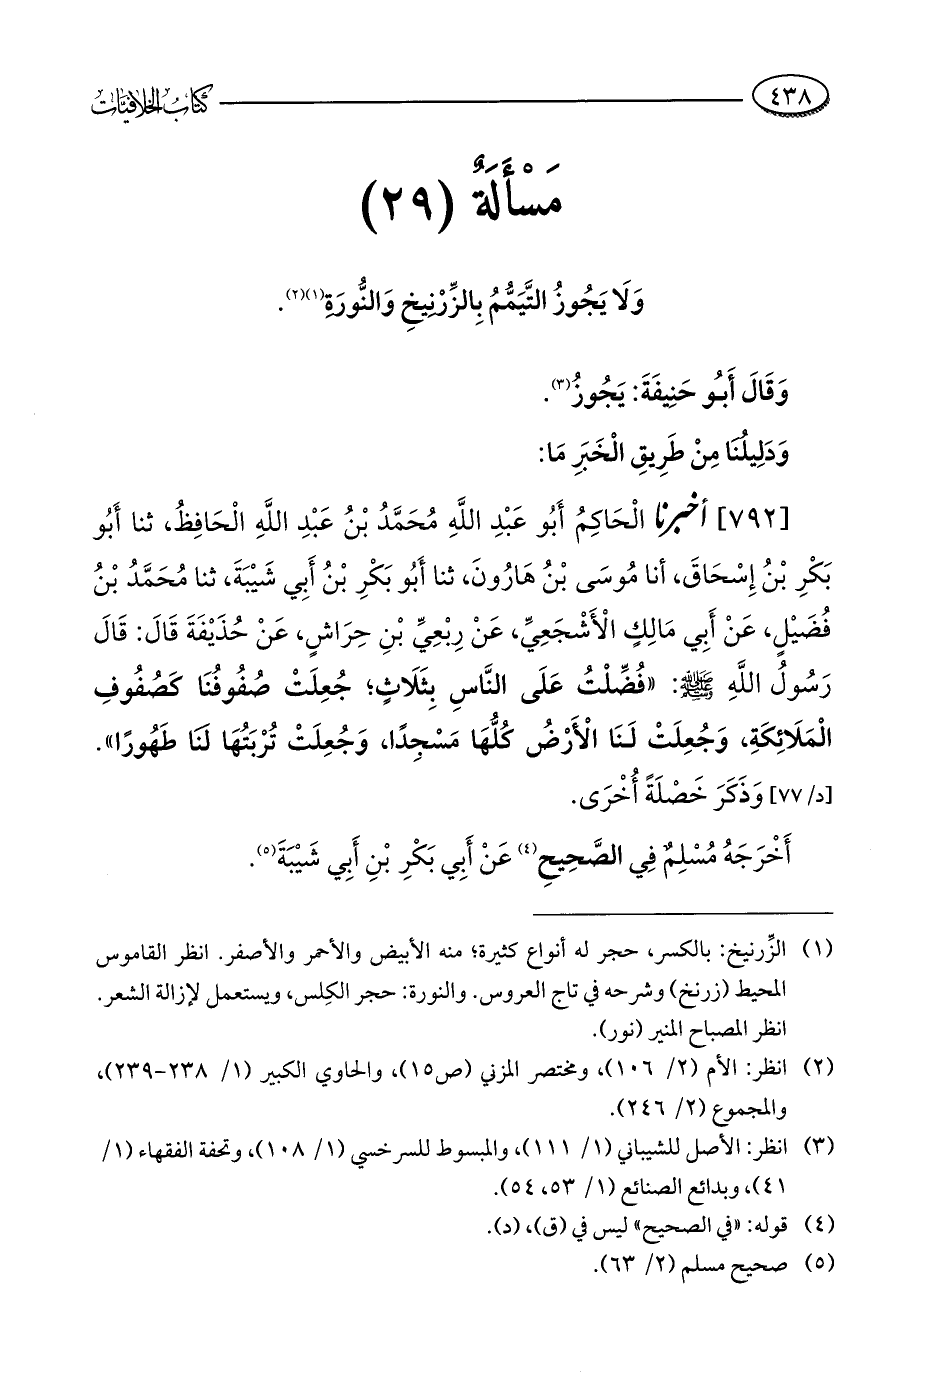 ٤٣٨ كتاب الخلافيات
مَسْأَلَةٌ (٢٩)
وَلَا يَجُوزُ التَّيَمُّمُ بِالزِّرْنِيخِ وَالنُّورَةِ(١)(٢).
وَقَالَ أَبُو حَنِيفَةَ: يَجُوزُ(٣).
وَدَلِيلُنَا مِنْ طَرِيقِ الْخَبَرِ مَا:
[٧٩٢] أخبرنا الْحَاكِمُ أَبُو عَبْدِ اللَّهِ مُحَمَّدُ بْنُ عَبْدِ اللَّهِ الْحَافِظُ، ثنا أَبُو
بَكْرِ بْنُ إِسْحَاقَ، أنا مُوسَى بْنُ هَارُونَ، ثنا أَبُو بَكْرِ بْنُ أَبِي شَيْبَةَ، ثنا مُحَمَّدُ بْنُ
فُضَيْلٍ، عَنْ أَبِي مَالِكٍ الْأَشْجَعِيِّ، عَنْ رِبْعِيِّ بْنِ حِرَاشٍ، عَنْ حُذَيْفَةَ قَالَ: قَالَ
رَسُولُ اللَّهِ ﷺ: «فُضِّلْتُ عَلَى النَّاسِ بِثَلَاثٍ؛ جُعِلَتْ صُفُوفُنَا كَصُفُوفِ
الْمَلَائِكَةِ، وَجُعِلَتْ لَنَا الْأَرْضُ كُلُّهَا مَسْجِدًا، وَجُعِلَتْ تُرْبَتُهَا لَنَا طَهُورًا».
[د/ ٧٧] وَذَكَرَ خَصْلَةً أُخْرَى.
أَخْرَجَهُ مُسْلِمٌ فِي الصَّحِيحِ(٤) عَنْ أَبِي بَكْرِ بْنِ أَبِي شَيْبَةَ(٥).
(١) الزِّرنيخ: بالكسر، حجر له أنواع كثيرة؛ منه الأبيض والأحمر والأصفر. انظر القاموس
المحيط (زرنخ) وشرحه في تاج العروس. والنورة: حجر الكِلس، ويستعمل لإزالة الشعر.
انظر المصباح المنير (نور).
(٢) انظر: الأم (٢/ ١٠٦)، ومختصر المزني (ص١٥)، والحاوي الكبير (١/ ٢٣٨-٢٣٩)،
والمجموع (٢/ ٢٤٦).
(٣) انظر: الأصل للشيباني (١/ ١١١)، والمبسوط للسرخسي (١/ ١٠٨)، وتحفة الفقهاء (١/
٤١)، وبدائع الصنائع (١/ ٥٣، ٥٤).
(٤) قوله: «في الصحيح» ليس في (ق)، (د).
(٥) صحيح مسلم (٢/ ٦٣).